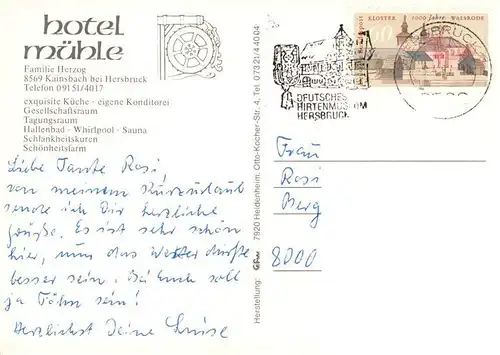 hotel
mühle
Familie Herzog
8569 Kainsbach bei Hersbruck
Telefon 09151/4017
exquisite Küche · eigene Konditorei
Gesellschaftsraum
Tagungsraum
Hallenbad · Whirlpool · Sauna
Schlankheitskuren
Schönheitsfarm
Liebe Tante Rosi,
von meinem Kurzurlaub
sende ich Dir herzliche
Grüße. Es ist sehr schön
hier, nur das Wetter dürfte
besser sein. Bei Euch soll
ja Föhn sein!
Herzlichst Deine Luise
Herstellung: 7920 Heidenheim, Otto-Kocher-Str. 4, Tel. 07321/44004
KLOSTER 1000 Jahre WALSRODE
60
DEUTSCHES
HIRTENMUSEUM
HERSBRUCK
Frau
Rosi
Berg
8000